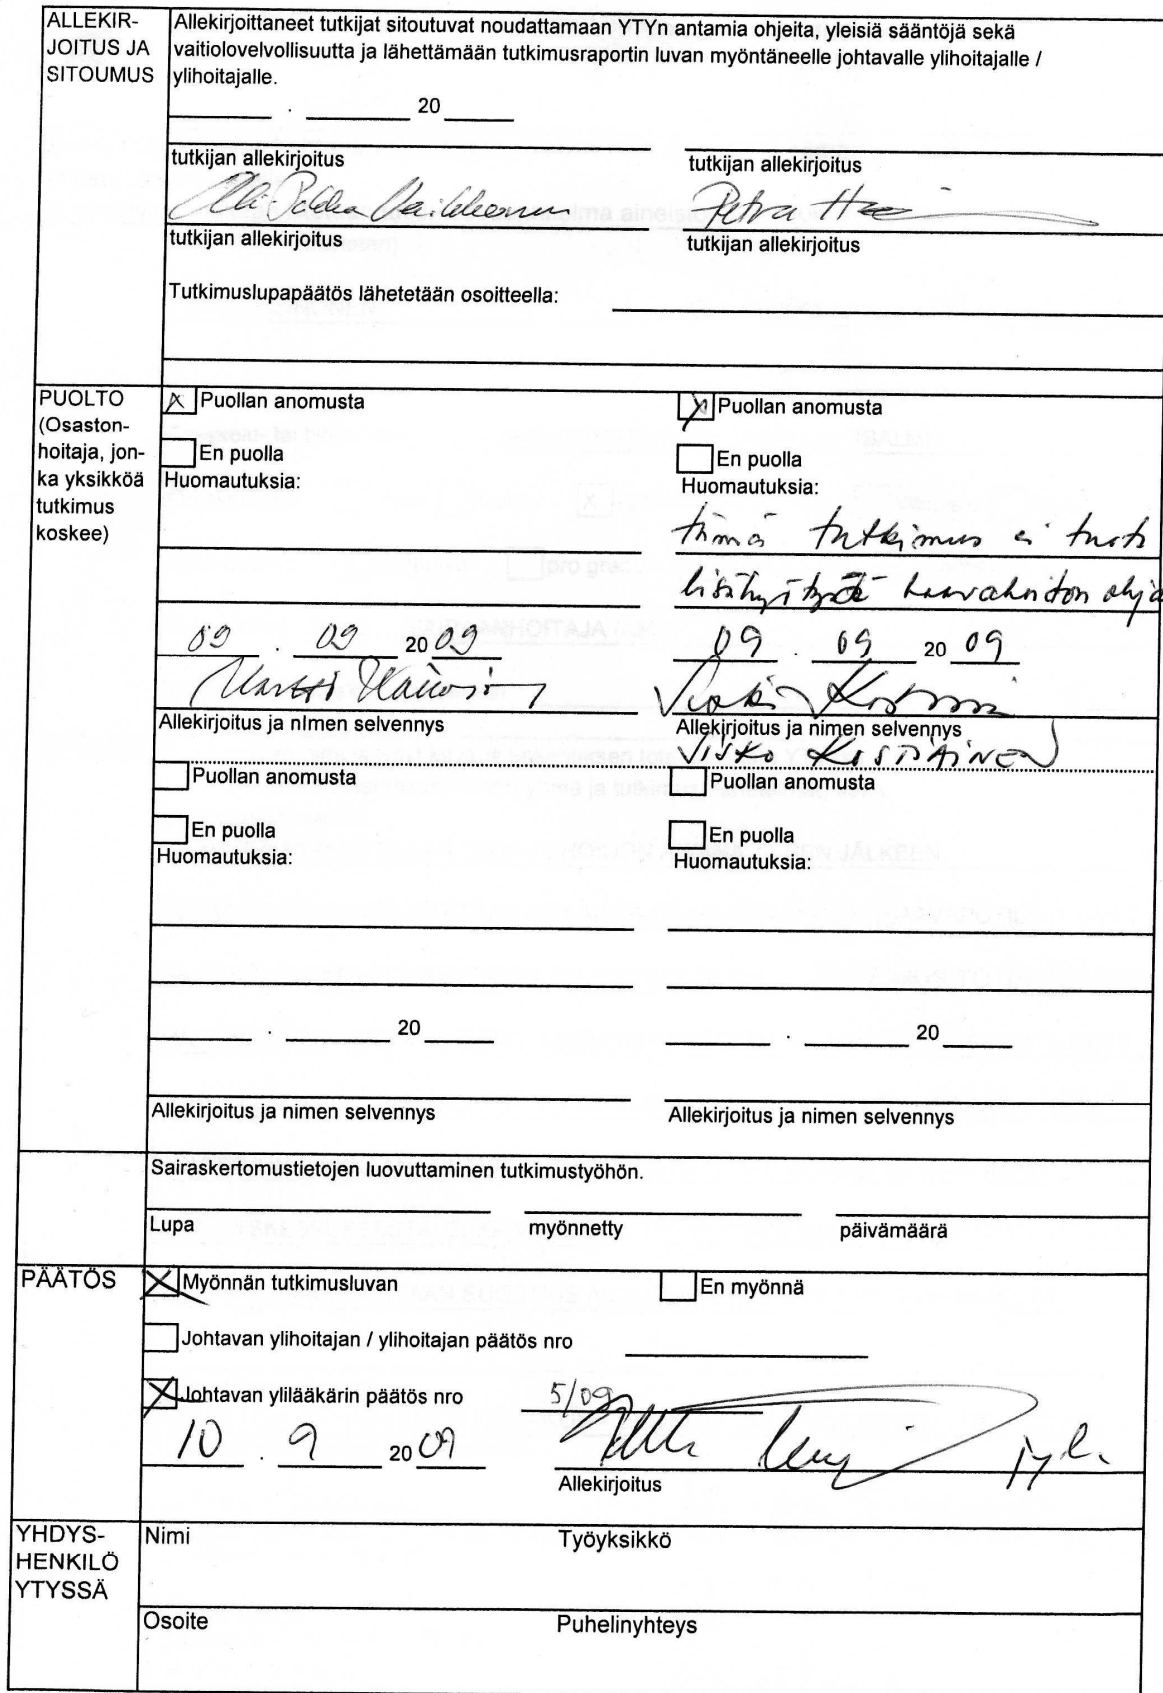 ALLEKIR-
JOITUS JA
SITOUMUS
Allekirjoittaneet tutkijat sitoutuvat noudattamaan YTYn antamia ohjeita, yleisiä sääntöjä sekä
vaitiolovelvollisuutta ja lähettämään tutkimusraportin luvan myöntäneelle johtavalle ylihoitajalle /
ylihoitajalle.
. 20
tutkijan allekirjoitus tutkijan allekirjoitus
Petra
tutkijan allekirjoitus tutkijan allekirjoitus
Tutkimuslupapäätös lähetetään osoitteella:
PUOLTO
(Osaston-
hoitaja, jon-
ka yksikköä
tutkimus
koskee)
X Puollan anomusta X Puollan anomusta
En puolla En puolla
Huomautuksia: Huomautuksia:
tämä tutkimus ei tuota
lisähyötyä haavahoidon ohja
09 . 09 2009 09 . 09 2009
Allekirjoitus ja nImen selvennys Allekirjoitus ja nimen selvennys
Puollan anomusta Puollan anomusta
En puolla En puolla
Huomautuksia: Huomautuksia:
. 20 . 20
Allekirjoitus ja nimen selvennys Allekirjoitus ja nimen selvennys
Sairaskertomustietojen luovuttaminen tutkimustyöhön.
Lupa myönnetty päivämäärä
PÄÄTÖS
X Myönnän tutkimusluvan En myönnä
Johtavan ylihoitajan / ylihoitajan päätös nro
X Johtavan ylilääkärin päätös nro 5/09
10 . 9 2009
Allekirjoitus
YHDYS-
HENKILÖ
YTYSSÄ
Nimi Työyksikkö
Osoite Puhelinyhteys